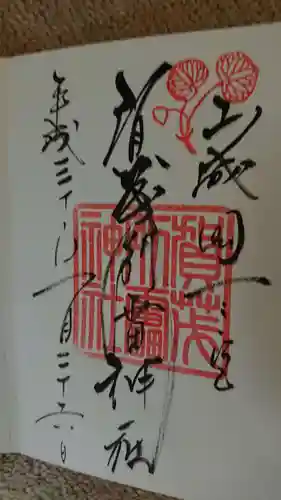 山城国一之宮
賀茂別雷神社
平成三十年一月二十六日
賀茂
別雷
神社